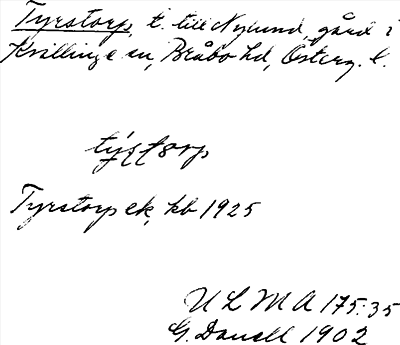 Tyrstorp, t. till Nylund, gård i
Kvillinge sn, Bråbo hd, Österg. l.
Tyrstorp ek, kb 1925
ULMA 175:35
G. Danell 1902